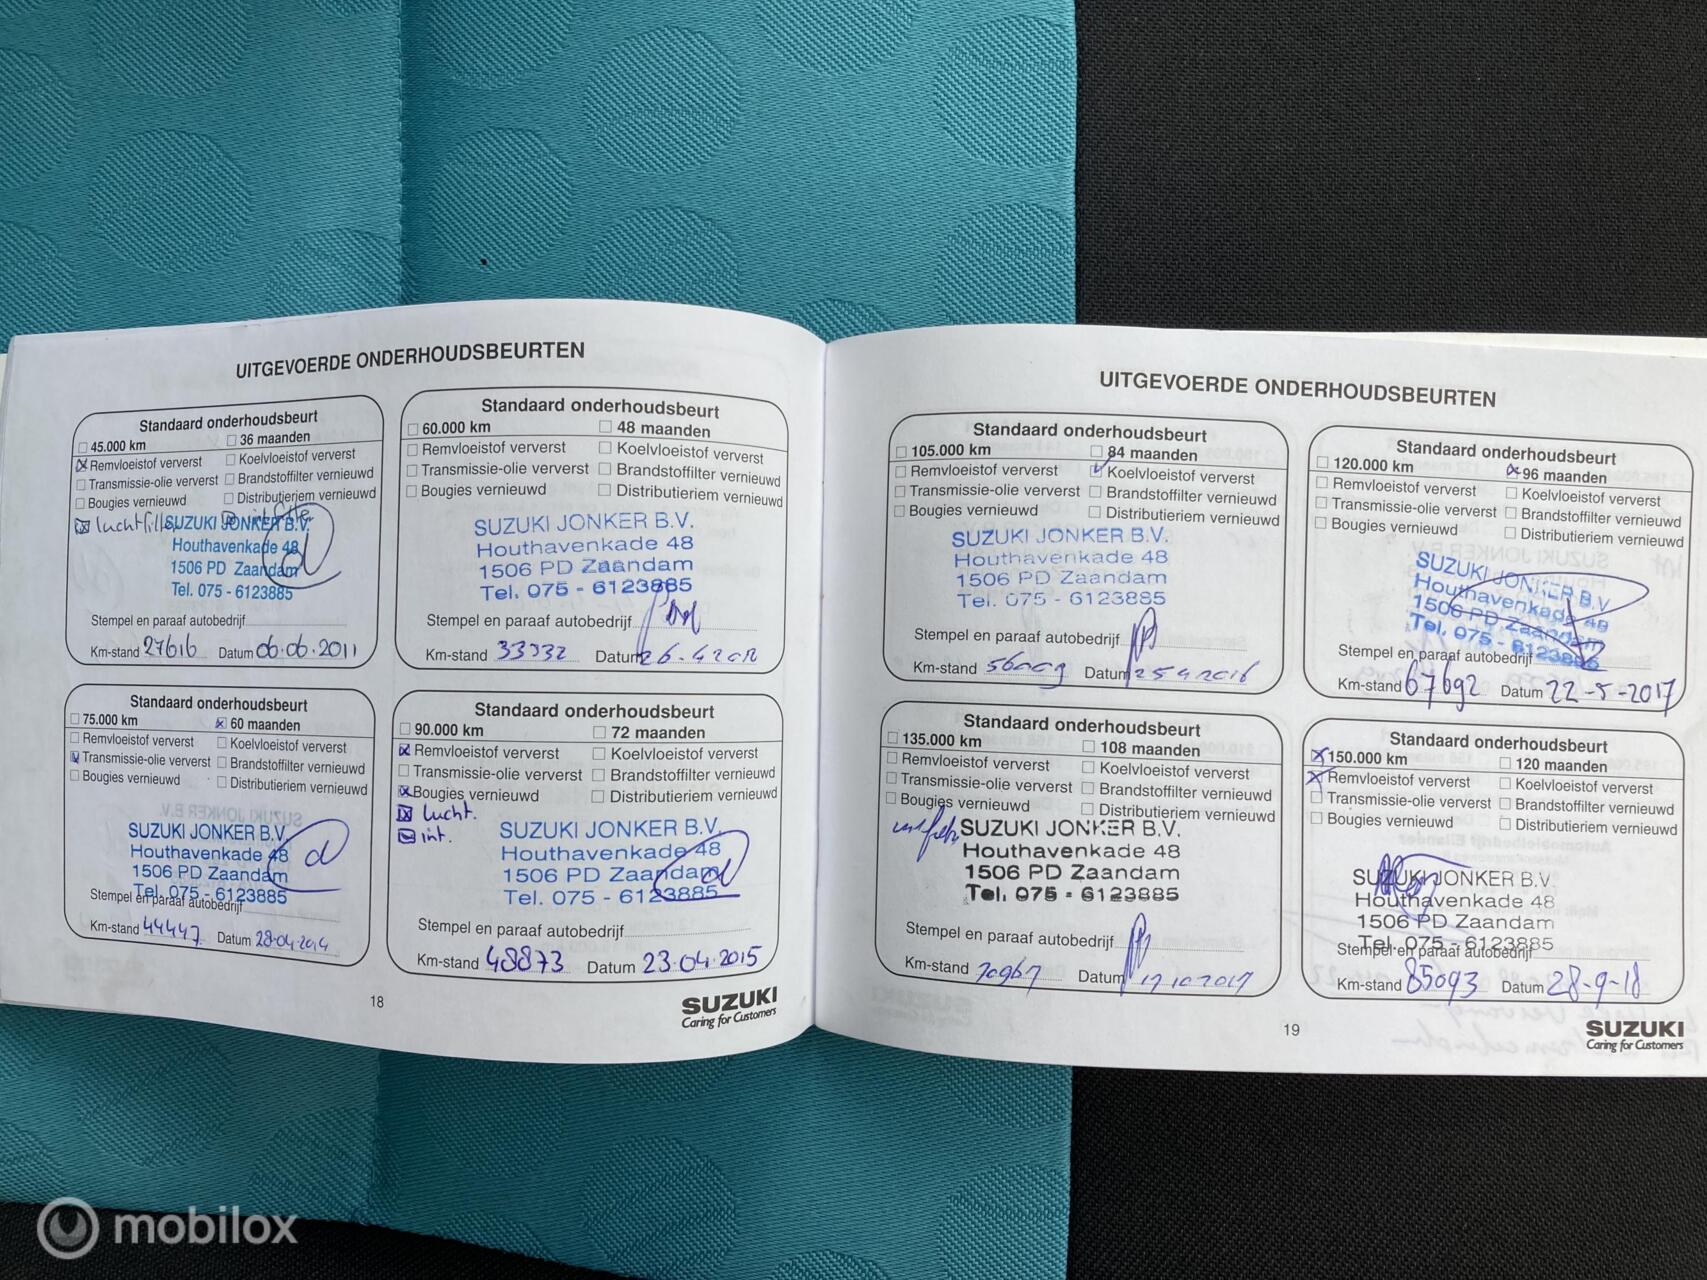 UITGEVOERDE ONDERHOUDSBEURTEN
Standaard onderhoudsbeurt
45.000 km 36 maanden
Remvloeistof ververst Koelvloeistof ververst
Transmissie-olie ververst Brandstoffilter vernieuwd
Bougies vernieuwd Distributieriem vernieuwd
luchtfilter
SUZUKI JONKER B.V.
Houthavenkade 48
1506 PD Zaandam
Tel. 075 - 6123885
Stempel en paraaf autobedrijf
Km-stand 27616 Datum 06.06.2011
Standaard onderhoudsbeurt
60.000 km 48 maanden
Remvloeistof ververst Koelvloeistof ververst
Transmissie-olie ververst Brandstoffilter vernieuwd
Bougies vernieuwd Distributieriem vernieuwd
SUZUKI JONKER B.V.
Houthavenkade 48
1506 PD Zaandam
Tel. 075 - 6123885
Stempel en paraaf autobedrijf
Km-stand 33332 Datum 26-4-2012
Standaard onderhoudsbeurt
75.000 km 60 maanden
Remvloeistof ververst Koelvloeistof ververst
Transmissie-olie ververst Brandstoffilter vernieuwd
Bougies vernieuwd Distributieriem vernieuwd
SUZUKI JONKER B.V.
Houthavenkade 48
1506 PD Zaandam
Tel. 075 - 6123885
Stempel en paraaf autobedrijf
Km-stand 44447 Datum 28-04-2014
Standaard onderhoudsbeurt
90.000 km 72 maanden
Remvloeistof ververst Koelvloeistof ververst
Transmissie-olie ververst Brandstoffilter vernieuwd
Bougies vernieuwd Distributieriem vernieuwd
lucht.
int.
SUZUKI JONKER B.V.
Houthavenkade 48
1506 PD Zaandam
Tel. 075 - 6123885
Stempel en paraaf autobedrijf
Km-stand 48873 Datum 23.04.2015
18
SUZUKI
Caring for Customers
UITGEVOERDE ONDERHOUDSBEURTEN
Standaard onderhoudsbeurt
105.000 km 84 maanden
Remvloeistof ververst Koelvloeistof ververst
Transmissie-olie ververst Brandstoffilter vernieuwd
Bougies vernieuwd Distributieriem vernieuwd
SUZUKI JONKER B.V.
Houthavenkade 48
1506 PD Zaandam
Tel. 075 - 6123885
Stempel en paraaf autobedrijf
Km-stand 56009 Datum 25 4 2016
Standaard onderhoudsbeurt
120.000 km 96 maanden
Remvloeistof ververst Koelvloeistof ververst
Transmissie-olie ververst Brandstoffilter vernieuwd
Bougies vernieuwd Distributieriem vernieuwd
SUZUKI JONKER B.V.
Houthavenkade 48
1506 PD Zaandam
Tel. 075 - 6123885
Stempel en paraaf autobedrijf
Km-stand 67692 Datum 22-5-2017
Standaard onderhoudsbeurt
135.000 km 108 maanden
Remvloeistof ververst Koelvloeistof ververst
Transmissie-olie ververst Brandstoffilter vernieuwd
Bougies vernieuwd Distributieriem vernieuwd
SUZUKI JONKER B.V.
Houthavenkade 48
1506 PD Zaandam
Tel. 075 - 6123885
Stempel en paraaf autobedrijf
Km-stand 70967 Datum 17 10 2017
Standaard onderhoudsbeurt
150.000 km 120 maanden
Remvloeistof ververst Koelvloeistof ververst
Transmissie-olie ververst Brandstoffilter vernieuwd
Bougies vernieuwd Distributieriem vernieuwd
SUZUKI JONKER B.V.
Houthavenkade 48
1506 PD Zaandam
Tel. 075 - 6123885
Stempel en paraaf autobedrijf
Km-stand 85093 Datum 28-9-18
19
SUZUKI
Caring for Customers
mobilox